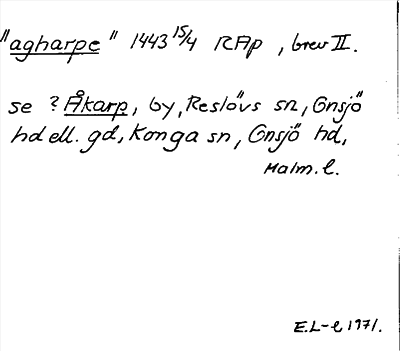 "agharpe" 1443 15/4 RAp, brev II.
se ? Åkarp, by, Reslövs sn, Onsjö
hd ell. gd, Konga sn, Onsjö hd,
Malm. l.
E.L-e 1971.